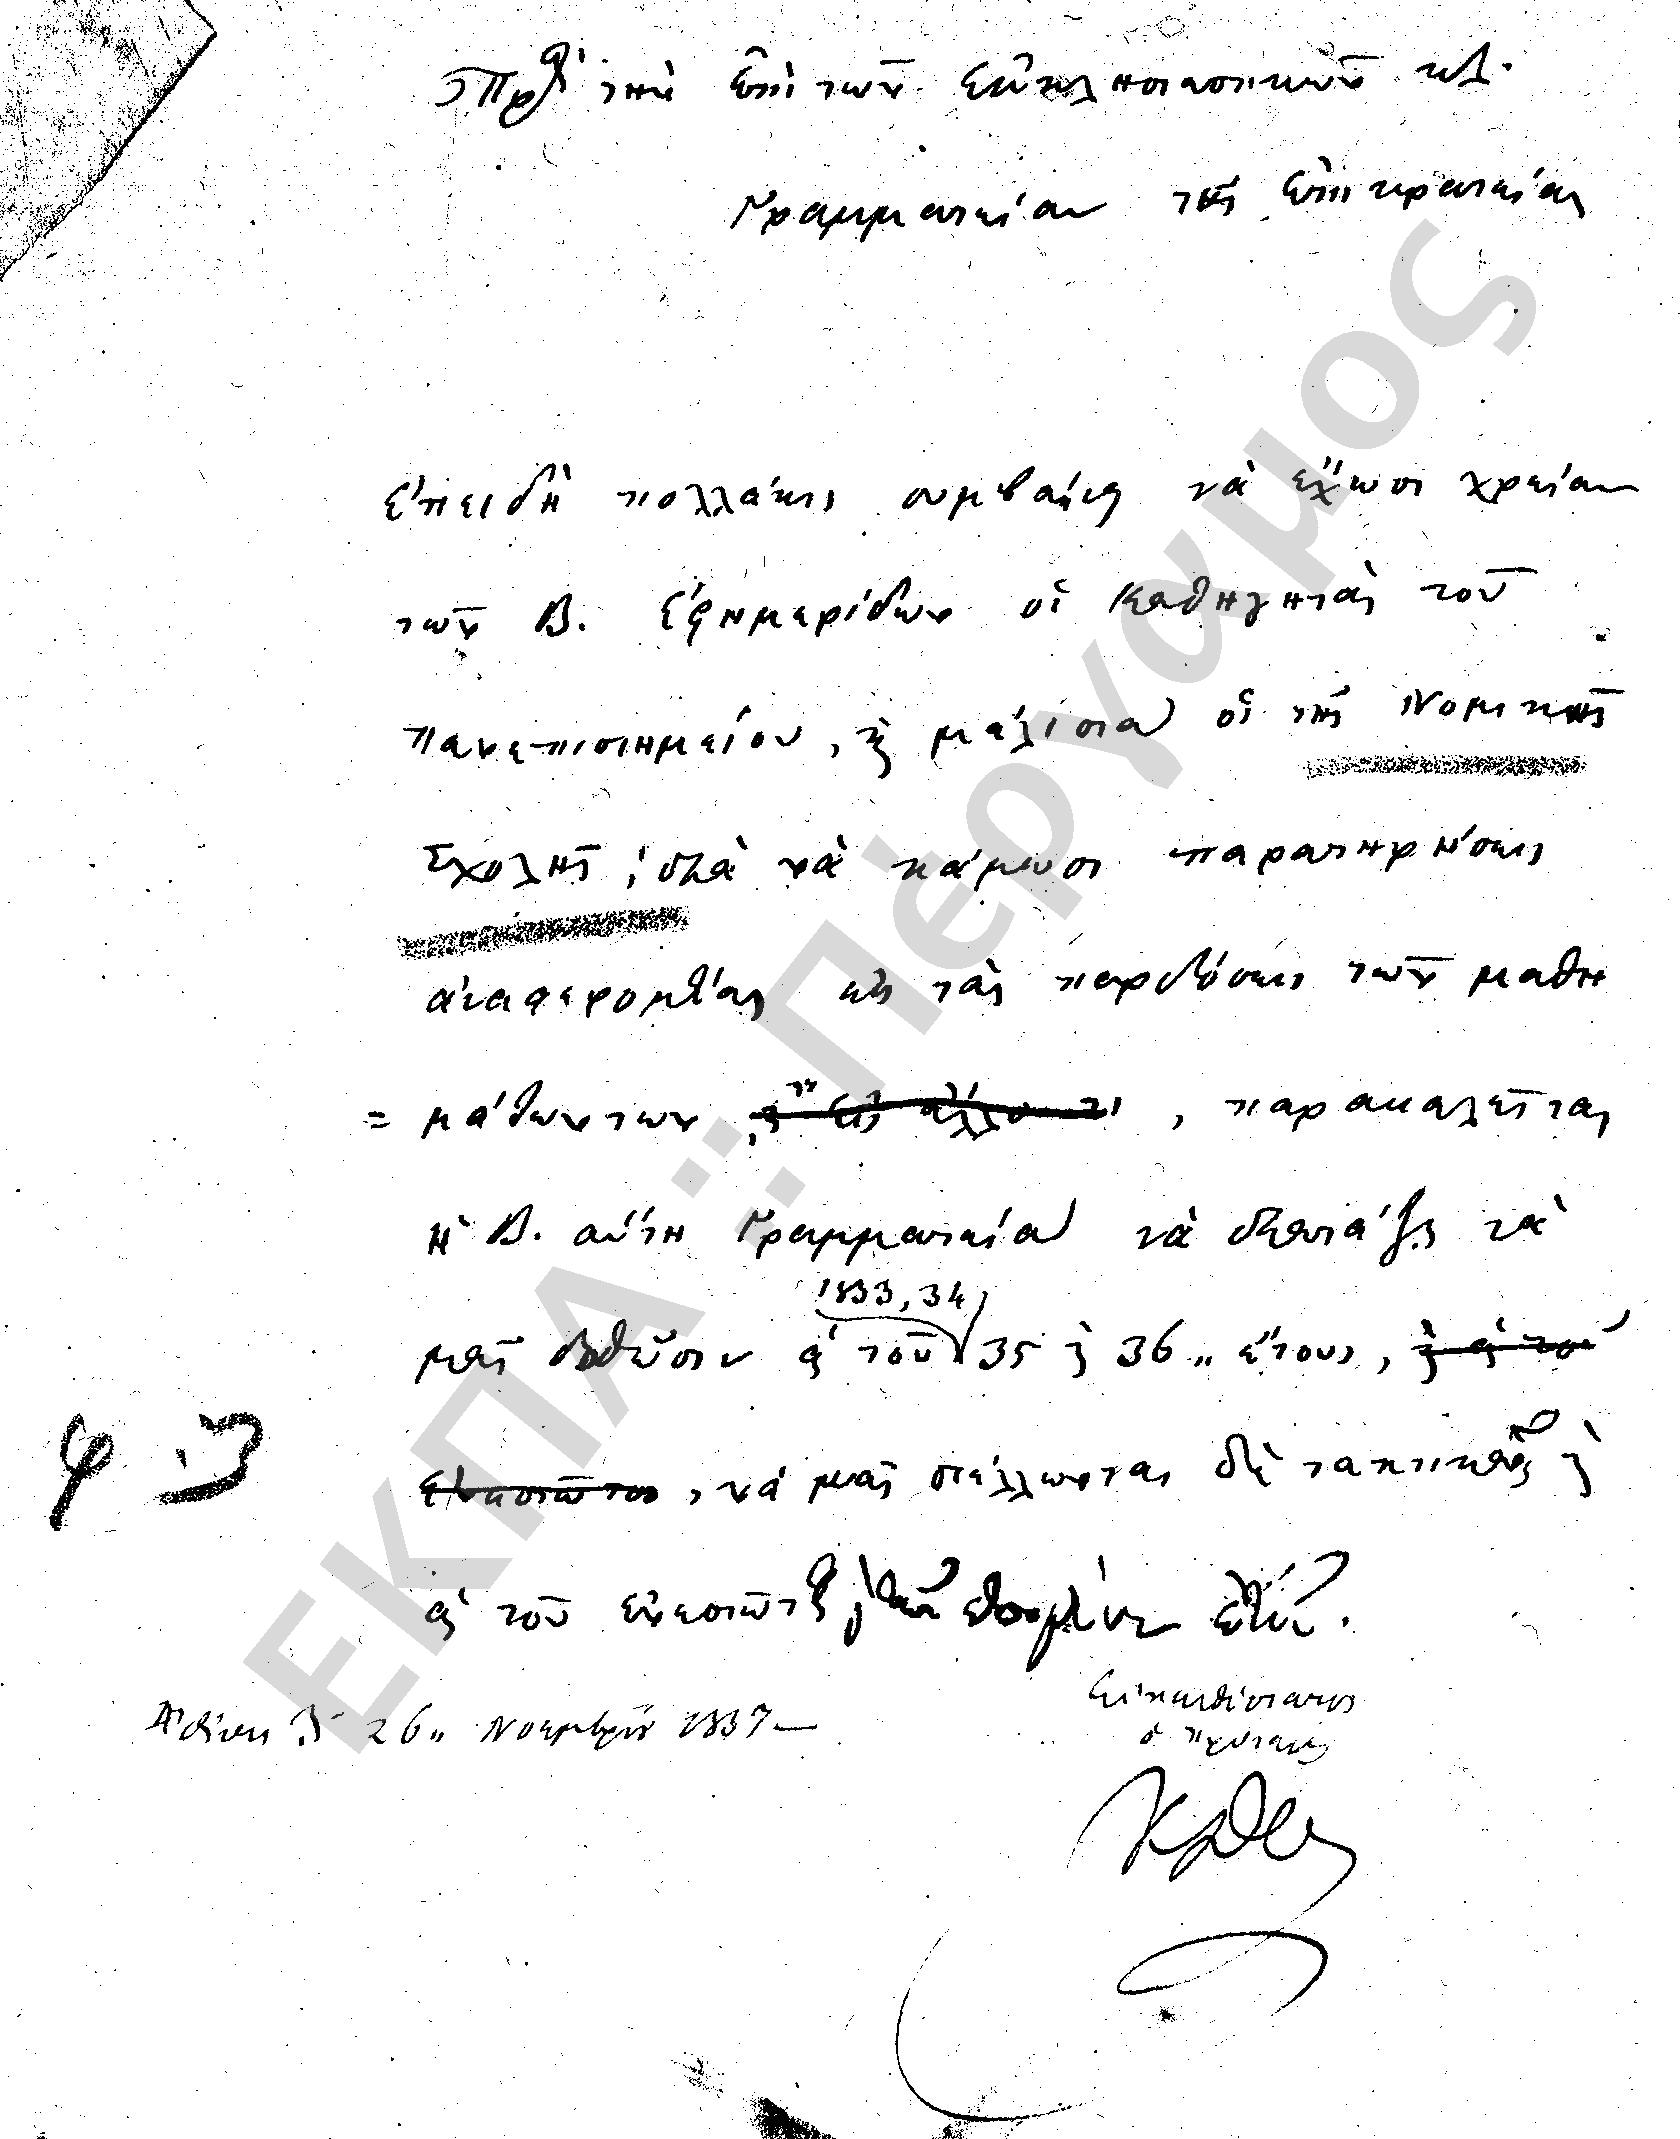 Πρὸς τὴν ἐπὶ τῶν Ἐκκλησιαστικῶν κλ.
Γραμματείαν τῆς Ἐπικρατείας
Ἐπειδὴ πολλάκις συμβαίνει νὰ ἔχωσι χρείαν
τῶν Β. Ἐφημερίδων οἱ Καθηγηταὶ τοῦ
Πανεπιστημείου, καὶ μάλιστα οἱ τῆς Νομικῆς
Σχολῆς, διὰ νὰ κάμωσι παρατηρήσεις
ἀναφερομένας εἰς τὰς παραδόσεις τῶν μαθη
= μάτων των, παρακαλεῖται
ἡ Β. αὕτη Γραμματεία νὰ διατάξῃ νὰ
1833, 34
μᾶς δοθῶσιν αἱ τοῦ 35 καὶ 36 „ ἔτους, καὶ αἱ τοῦ
ἐνεστῶτος, νὰ μᾶς στέλλωνται δὲ τακτικῶς καὶ
αἱ τοῦ ἐνεστῶτος καὶ τῶν ἑπομένων ἐτῶν.
Ἀθήναι 26 „ Νοεμβρίου 1837
Εὐπειθέστατος
ὁ Πρύτανις
φ 3
ΕΚΠΑ :: Πέργαμος